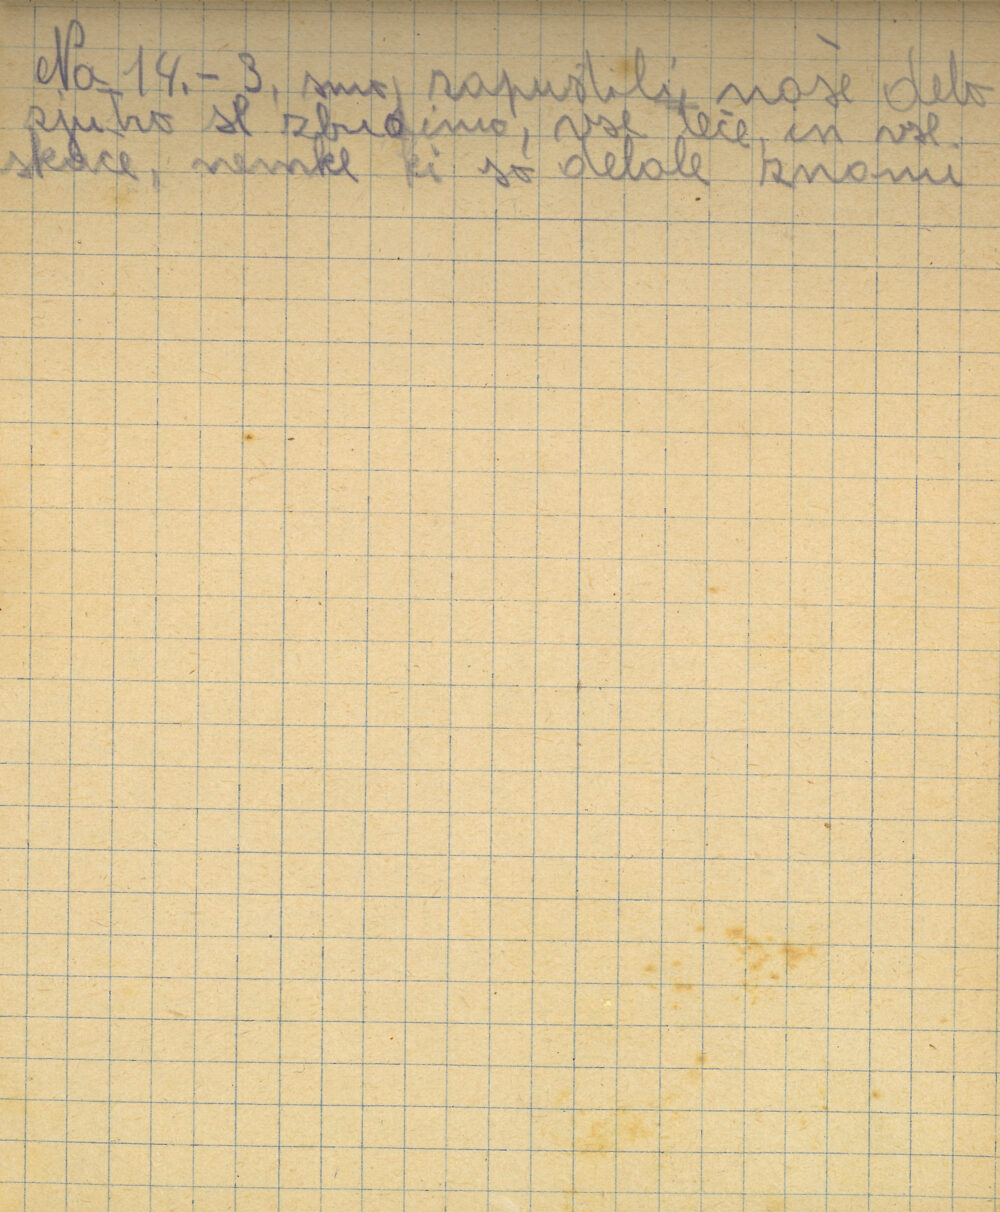 Na 14.-3. smo zapustili naše delo
zjutro se zbudimo, vse teče, in vse.
skače, nemke ki so delale znami